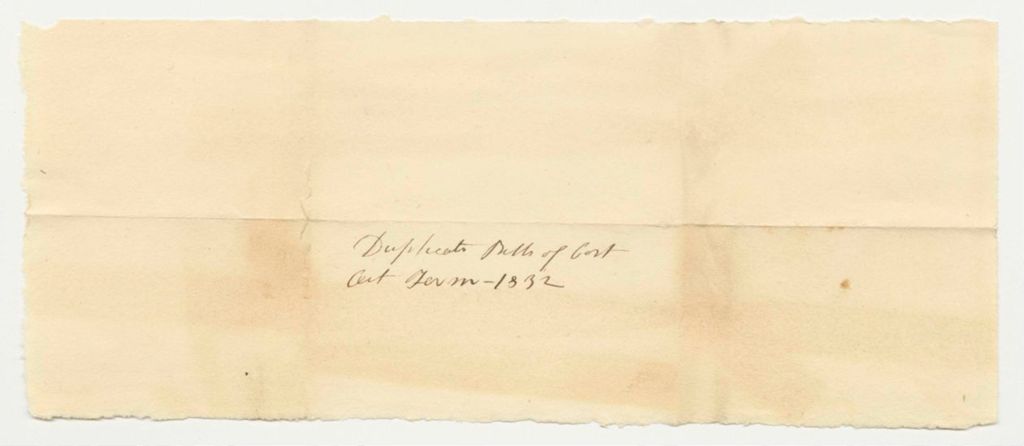 Duplicate Bills of Cost
Oct Term - 1832